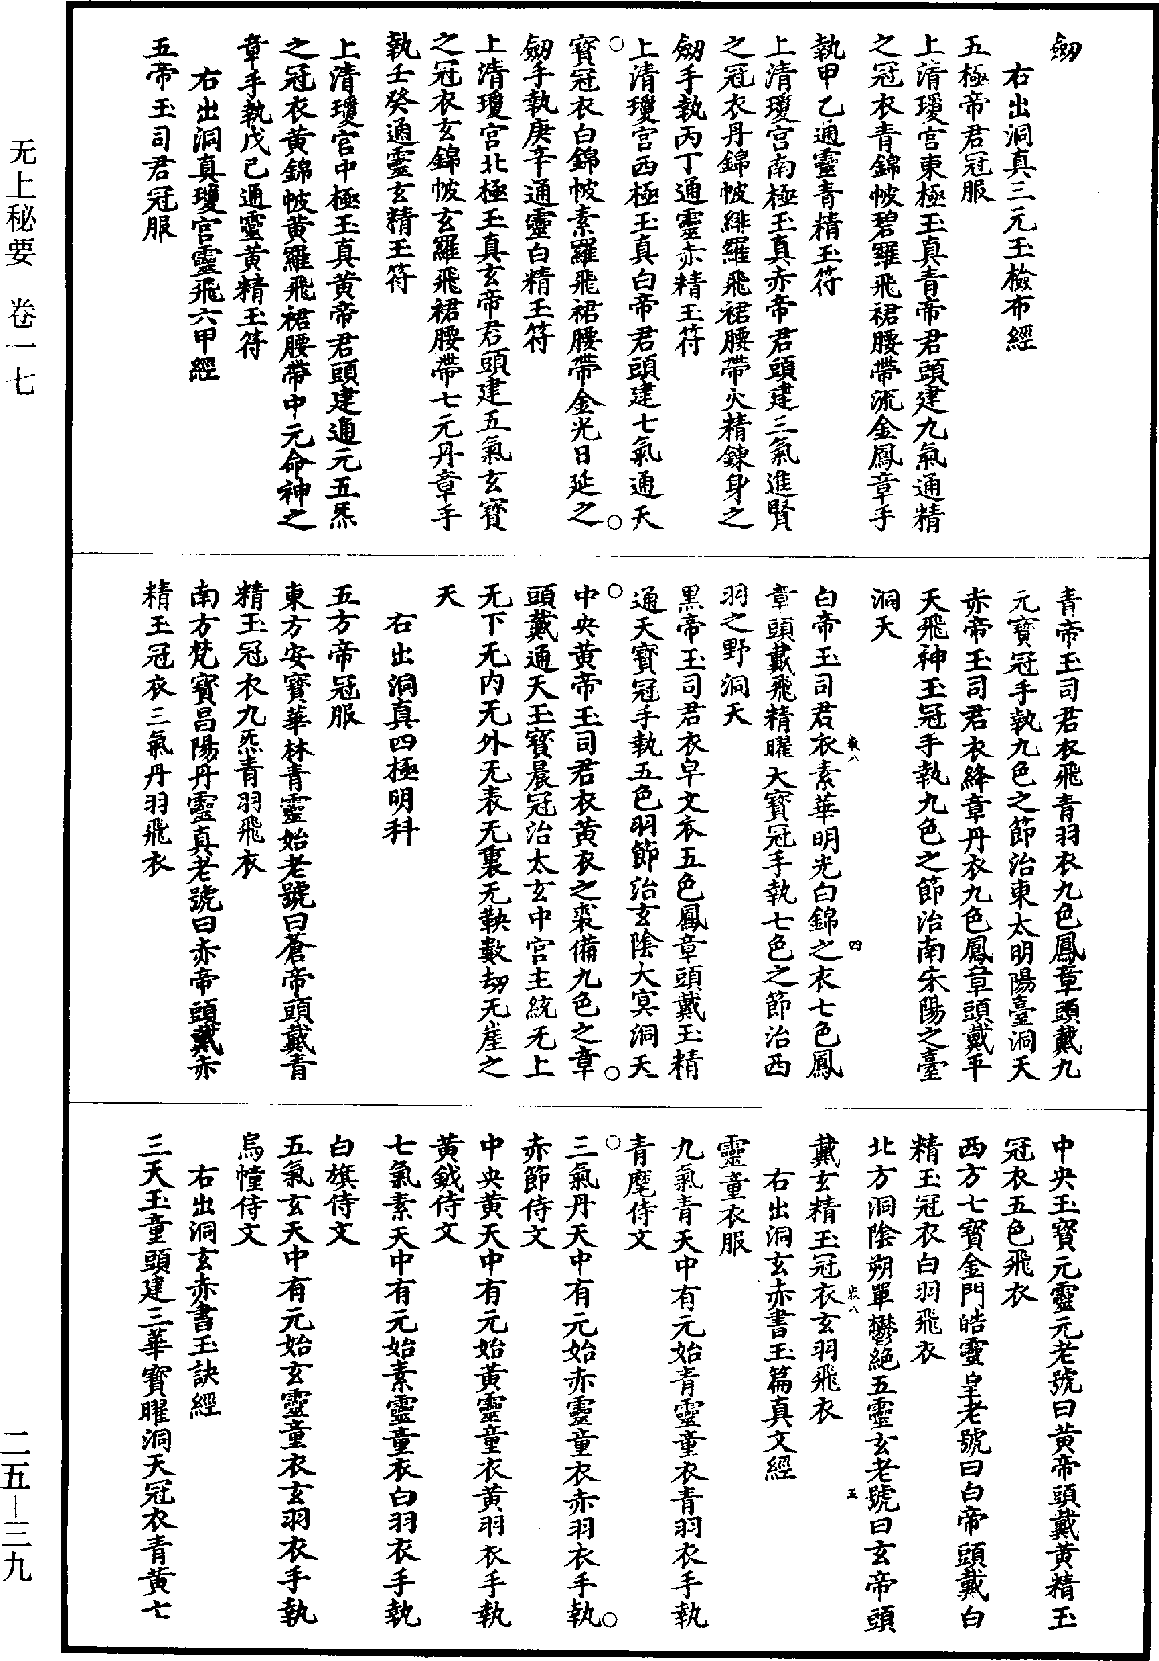 劒
右出洞真三元玉檢布經
五極帝君冠服
上清瓊宮東極玉真青帝君頭建九氣通精
之冠衣青錦帔碧羅飛裙腰帶流金鳳章手
執甲乙通靈青精玉符
上清瓊宮南極玉真赤帝君頭建三氣進賢
之冠衣丹錦帔緋羅飛裙腰帶火精鍊身之
劒手執丙丁通靈赤精玉符
上清瓊宮西極玉真白帝君頭建七氣通天
寶冠衣白錦帔素羅飛裙腰帶金光日延之
劒手執庚辛通靈白精玉符
上清瓊宮北極玉真玄帝君頭建五氣玄寶
之冠衣玄錦帔玄羅飛裙腰帶七元丹章手
執壬癸通靈玄精玉符
上清瓊宮中極玉真黃帝君頭建通元五炁
之冠衣黃錦帔黃羅飛裙腰帶中元命神之
章手執戊己通靈黃精玉符
右出洞真瓊宮靈飛六甲經
五帝玉司君冠服
青帝玉司君衣飛青羽衣九色鳳章頭戴九
元寶冠手執九色之節治東太明陽臺洞天
赤帝玉司君衣絳章丹衣九色鳳章頭戴平
天飛神玉冠手執九色之節治南宋陽之臺
洞天
白帝玉司君衣素華明光白錦之衣七色鳳
章頭戴飛精曜天寶冠手執七色之節治西
羽之野洞天
黑帝玉司君衣皁文衣五色鳳章頭戴玉精
通天寶冠手執五色羽節治玄陰大冥洞天
中央黃帝玉司君衣黃衣之裘備九色之章
頭戴通天玉寶晨冠治太玄中宮主統无上
无下无內无外无表无裏无鞅數劫无崖之
天
右出洞真四極明科
五方帝冠服
東方安寶華林青靈始老號曰蒼帝頭戴青
精玉冠衣九炁青羽飛衣
南方梵寶昌陽丹靈真老號曰赤帝頭戴赤
精玉冠衣三氣丹羽飛衣
中央玉寶元靈元老號曰黃帝頭戴黃精玉
冠衣五色飛衣
西方七寶金門皓靈皇老號曰白帝頭戴白
精玉冠衣白羽飛衣
北方洞陰朔單鬱絕五靈玄老號曰玄帝頭
戴玄精玉冠衣玄羽飛衣
右出洞玄赤書玉篇真文經
靈童衣服
九氣青天中有元始青靈童衣青羽衣手執
青麾侍文
三氣丹天中有元始赤靈童衣赤羽衣手執
赤節侍文
中央黃天中有元始黃靈童衣黃羽衣手執
黃鉞侍文
七氣素天中有元始素靈童衣白羽衣手執
白旗侍文
五氣玄天中有元始玄靈童衣玄羽衣手執
烏幢侍文
右出洞玄赤書玉訣經
三天玉童頭建三華寶曜洞天冠衣青黃七
无上秘要 卷一七
二五—三九